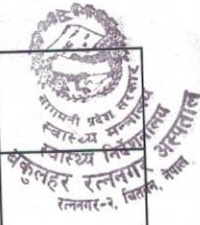 बागमती प्रदेश सरकार
स्वास्थ्य मन्त्रालय
स्वास्थ्य निर्देशनालय
बकुलहर रत्ननगर अस्पताल
रत्ननगर-२, चितवन, नेपाल